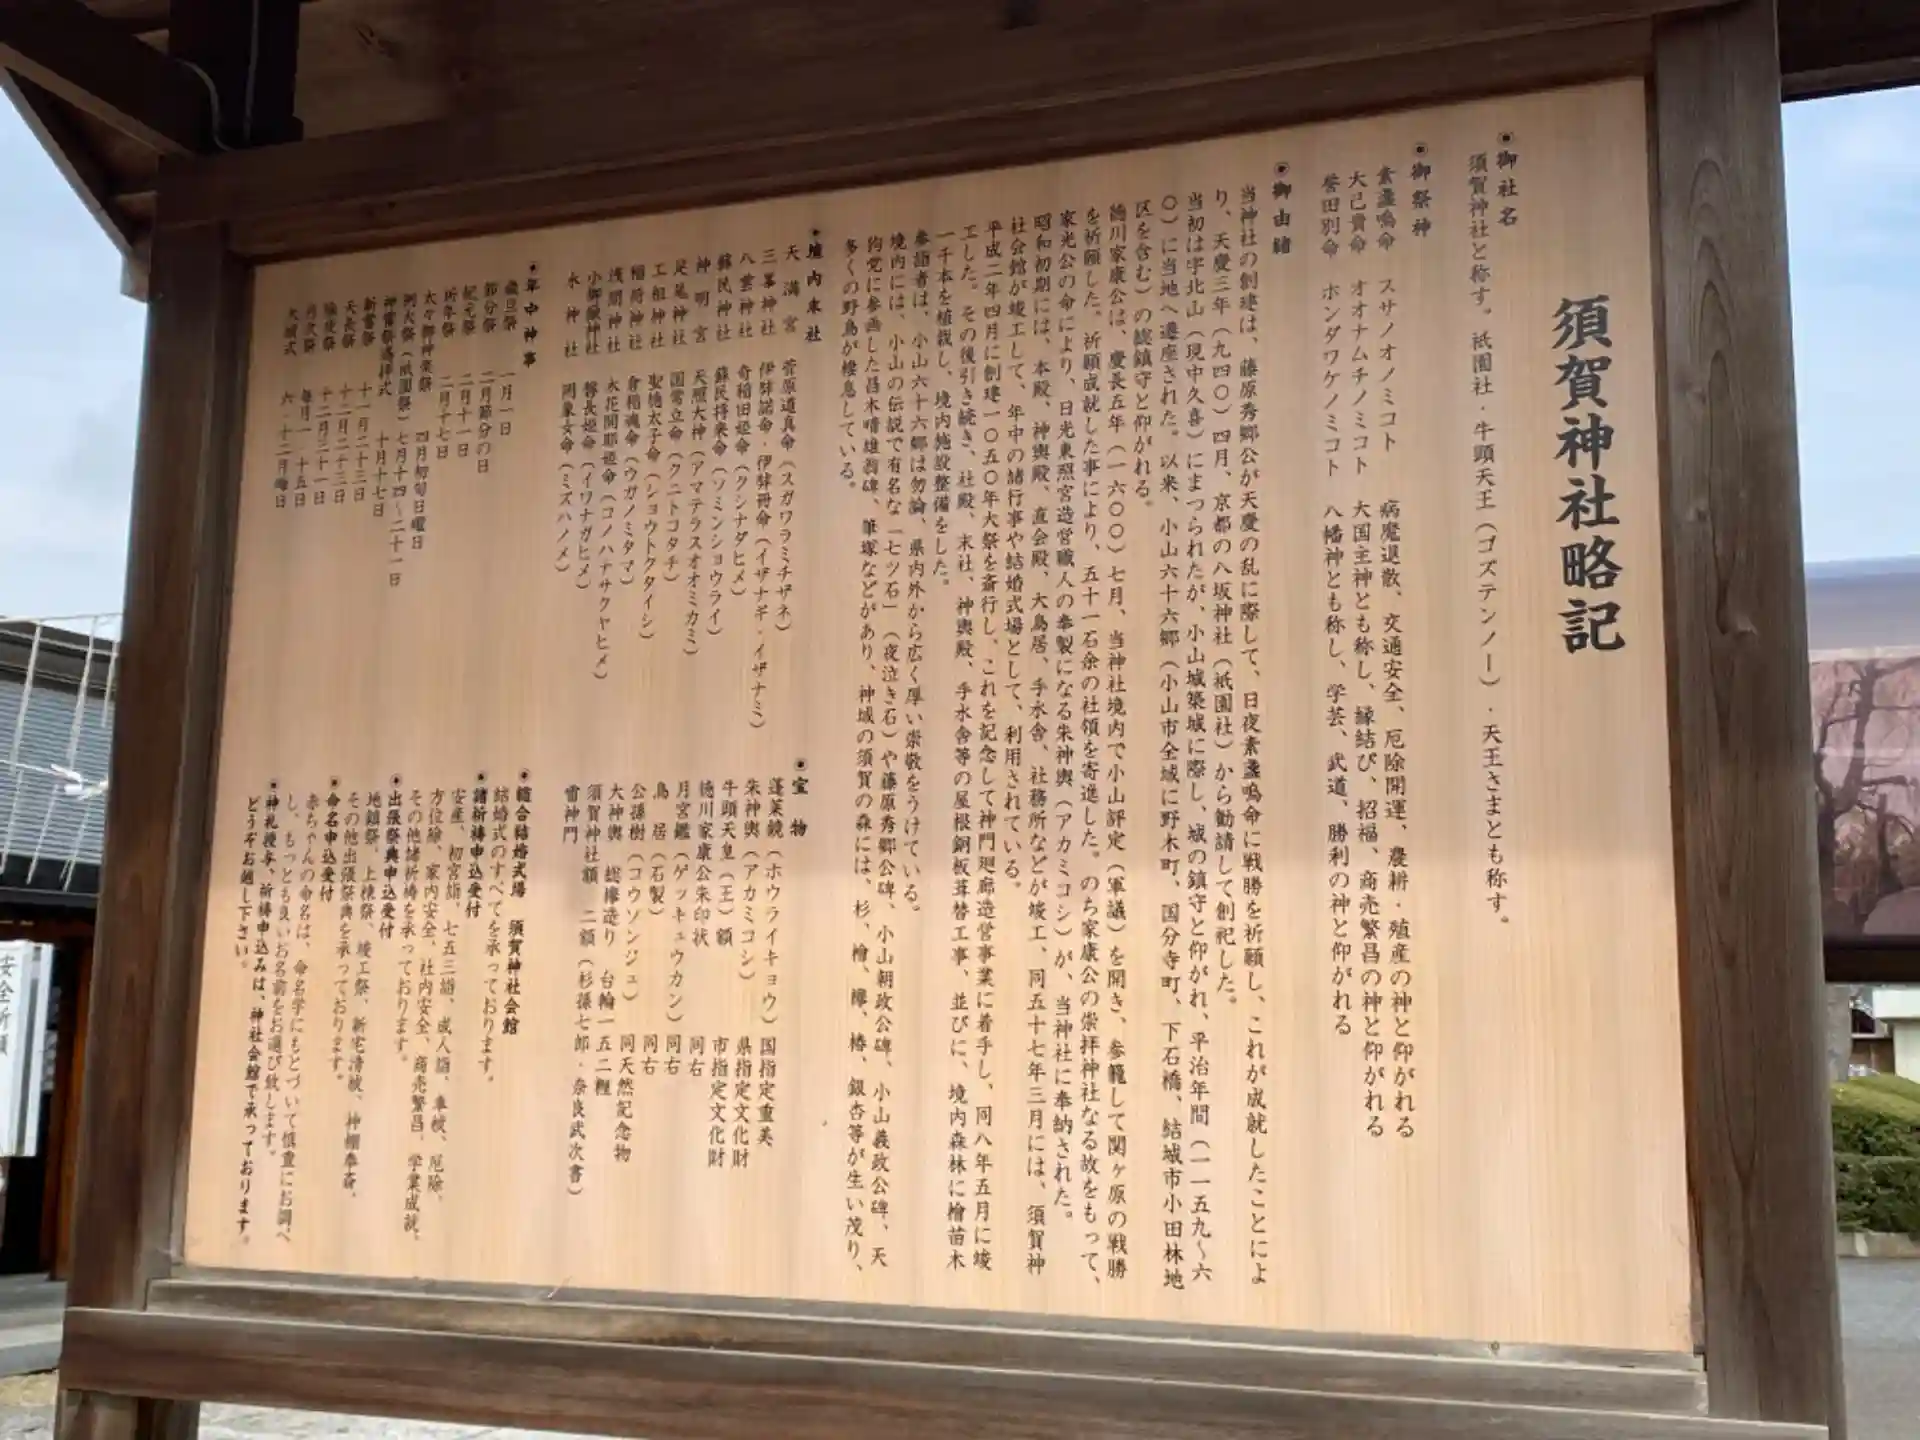 須賀神社略記
御社名
須賀神社と称す。祇園社・牛頭天王(ゴズテンノー)・天王さまとも称す。
御祭神
素盞嗚命 スサノオノミコト 病魔退散、交通安全、厄除開運、農耕・殖産の神と仰がれる
大己貴命 オオナムチノミコト 大国主神とも称し、縁結び、招福、商売繁昌の神と仰がれる
誉田別命 ホンダワケノミコト 八幡神とも称し、学芸、武道、勝利の神と仰がれる
御由緒
当神社の創建は、藤原秀郷公が天慶の乱に際して、日夜素盞嗚命に戦勝を祈願し、これが成就したことによ
り、天慶三年(九四〇)四月、京都の八坂神社(祇園社)から勧請して創祀した。
当初は字北山(現中久喜)にまつられたが、小山城築城に際し、城の鎮守と仰がれ、平治年間(一一五九〜六
〇)に当地へ遷座された。以来、小山六十六郷(小山市全域に野木町、国分寺町、下石橋、結城市小田林地
区を含む)の総鎮守と仰がれる。
徳川家康公は、慶長五年(一六〇〇)七月、当神社境内で小山評定(軍議)を開き、参籠して関ヶ原の戦勝
を祈願した。祈願成就した事により、五十一石余の社領を寄進した。のち家康公の崇拝神社なる故をもって、
家光公の命により、日光東照宮造営職人の奉製になる朱神輿(アカミコシ)が、当神社に奉納された。
昭和初期には、本殿、神輿殿、直会殿、大鳥居、手水舎、社務所などが竣工、同五十七年三月には、須賀神
社会館が竣工して、年中の諸行事や結婚式場として、利用されている。
平成二年四月に創建一〇五〇年大祭を斎行し、これを記念して神門廻廊造営事業に着手し、同八年五月に竣
工した。その後引き続き、社殿、末社、神輿殿、手水舎等の屋根銅板葺替工事、並びに、境内森林に檜苗木
一千本を植栽し、境内施設整備をした。
参詣者は、小山六十六郷は勿論、県内外から広く厚い崇敬をうけている。
境内には、小山の伝説で有名な「七ツ石」(夜泣き石)や藤原秀郷公碑、小山朝政公碑、小山義政公碑、天
狗党に参画した昌木晴雄翁碑、筆塚などがあり、神域の須賀の森には、杉、檜、欅、椿、銀杏等が生い茂り、
多くの野鳥が棲息している。
境内末社
天満宮 菅原道真命(スガワラミチザネ)
三峯神社 伊弉諾命・伊弉冊命(イザナギ・イザナミ)
八雲神社 奇稲田姫命(クシナダヒメ)
蘇民神社 蘇民将来命(ソミンショウライ)
神明宮 天照大神(アマテラスオオミカミ)
足尾神社 国常立命(クニトコタチ)
工祖神社 聖徳太子命(ショウトクタイシ)
稲荷神社 倉稲魂命(ウガノミタマ)
浅間神社 木花開耶姫命(コノハナサクヤヒメ)
小御嶽神社 磐長姫命(イワナガヒメ)
水神社 罔象女命(ミズハノメ)
宝物
蓬莱鏡(ホウライキョウ) 国指定重美
朱神輿(アカミコシ) 県指定文化財
牛頭天皇(王)額 市指定文化財
徳川家康公朱印状 同右
月宮鑑(ゲッキュウカン) 同右
鳥居(石製) 同右
公孫樹(コウソンジュ) 同天然記念物
大神輿 総欅造り 台輪一五二糎
須賀神社額 二額(杉孫七郎・奈良武次書)
雷神門
年中神事
歳旦祭 一月一日
節分祭 二月節分の日
紀元祭 二月十一日
祈年祭 二月十七日
太々御神楽祭 四月初旬日曜日
例大祭(祇園祭) 七月十四〜二十一日
神嘗祭遥拝式 十月十七日
新嘗祭 十一月二十三日
天長祭 十二月二十三日
除夜祭 十二月三十一日
月次祭 毎月一 十五日
大祓式 六・十二月晦日
総合結婚式場 須賀神社会館
結婚式のすべてを承っております。
諸祈祷申込受付
安産、初宮詣、七五三詣、成人詣、車祓、厄除、
方位除、家内安全、社内安全、商売繁昌、学業成就、
その他諸祈祷を承っております。
出張祭典申込受付
地鎮祭、上棟祭、竣工祭、新宅清祓、神棚奉斎、
その他出張祭典を承っております。
命名申込受付
赤ちゃんの命名は、命名学にもとづいて慎重にお調べ
し、もっとも良いお名前をお選び致します。
神札授与、祈祷申込みは、神社会館で承っております。
どうぞお越し下さい。
安全祈願